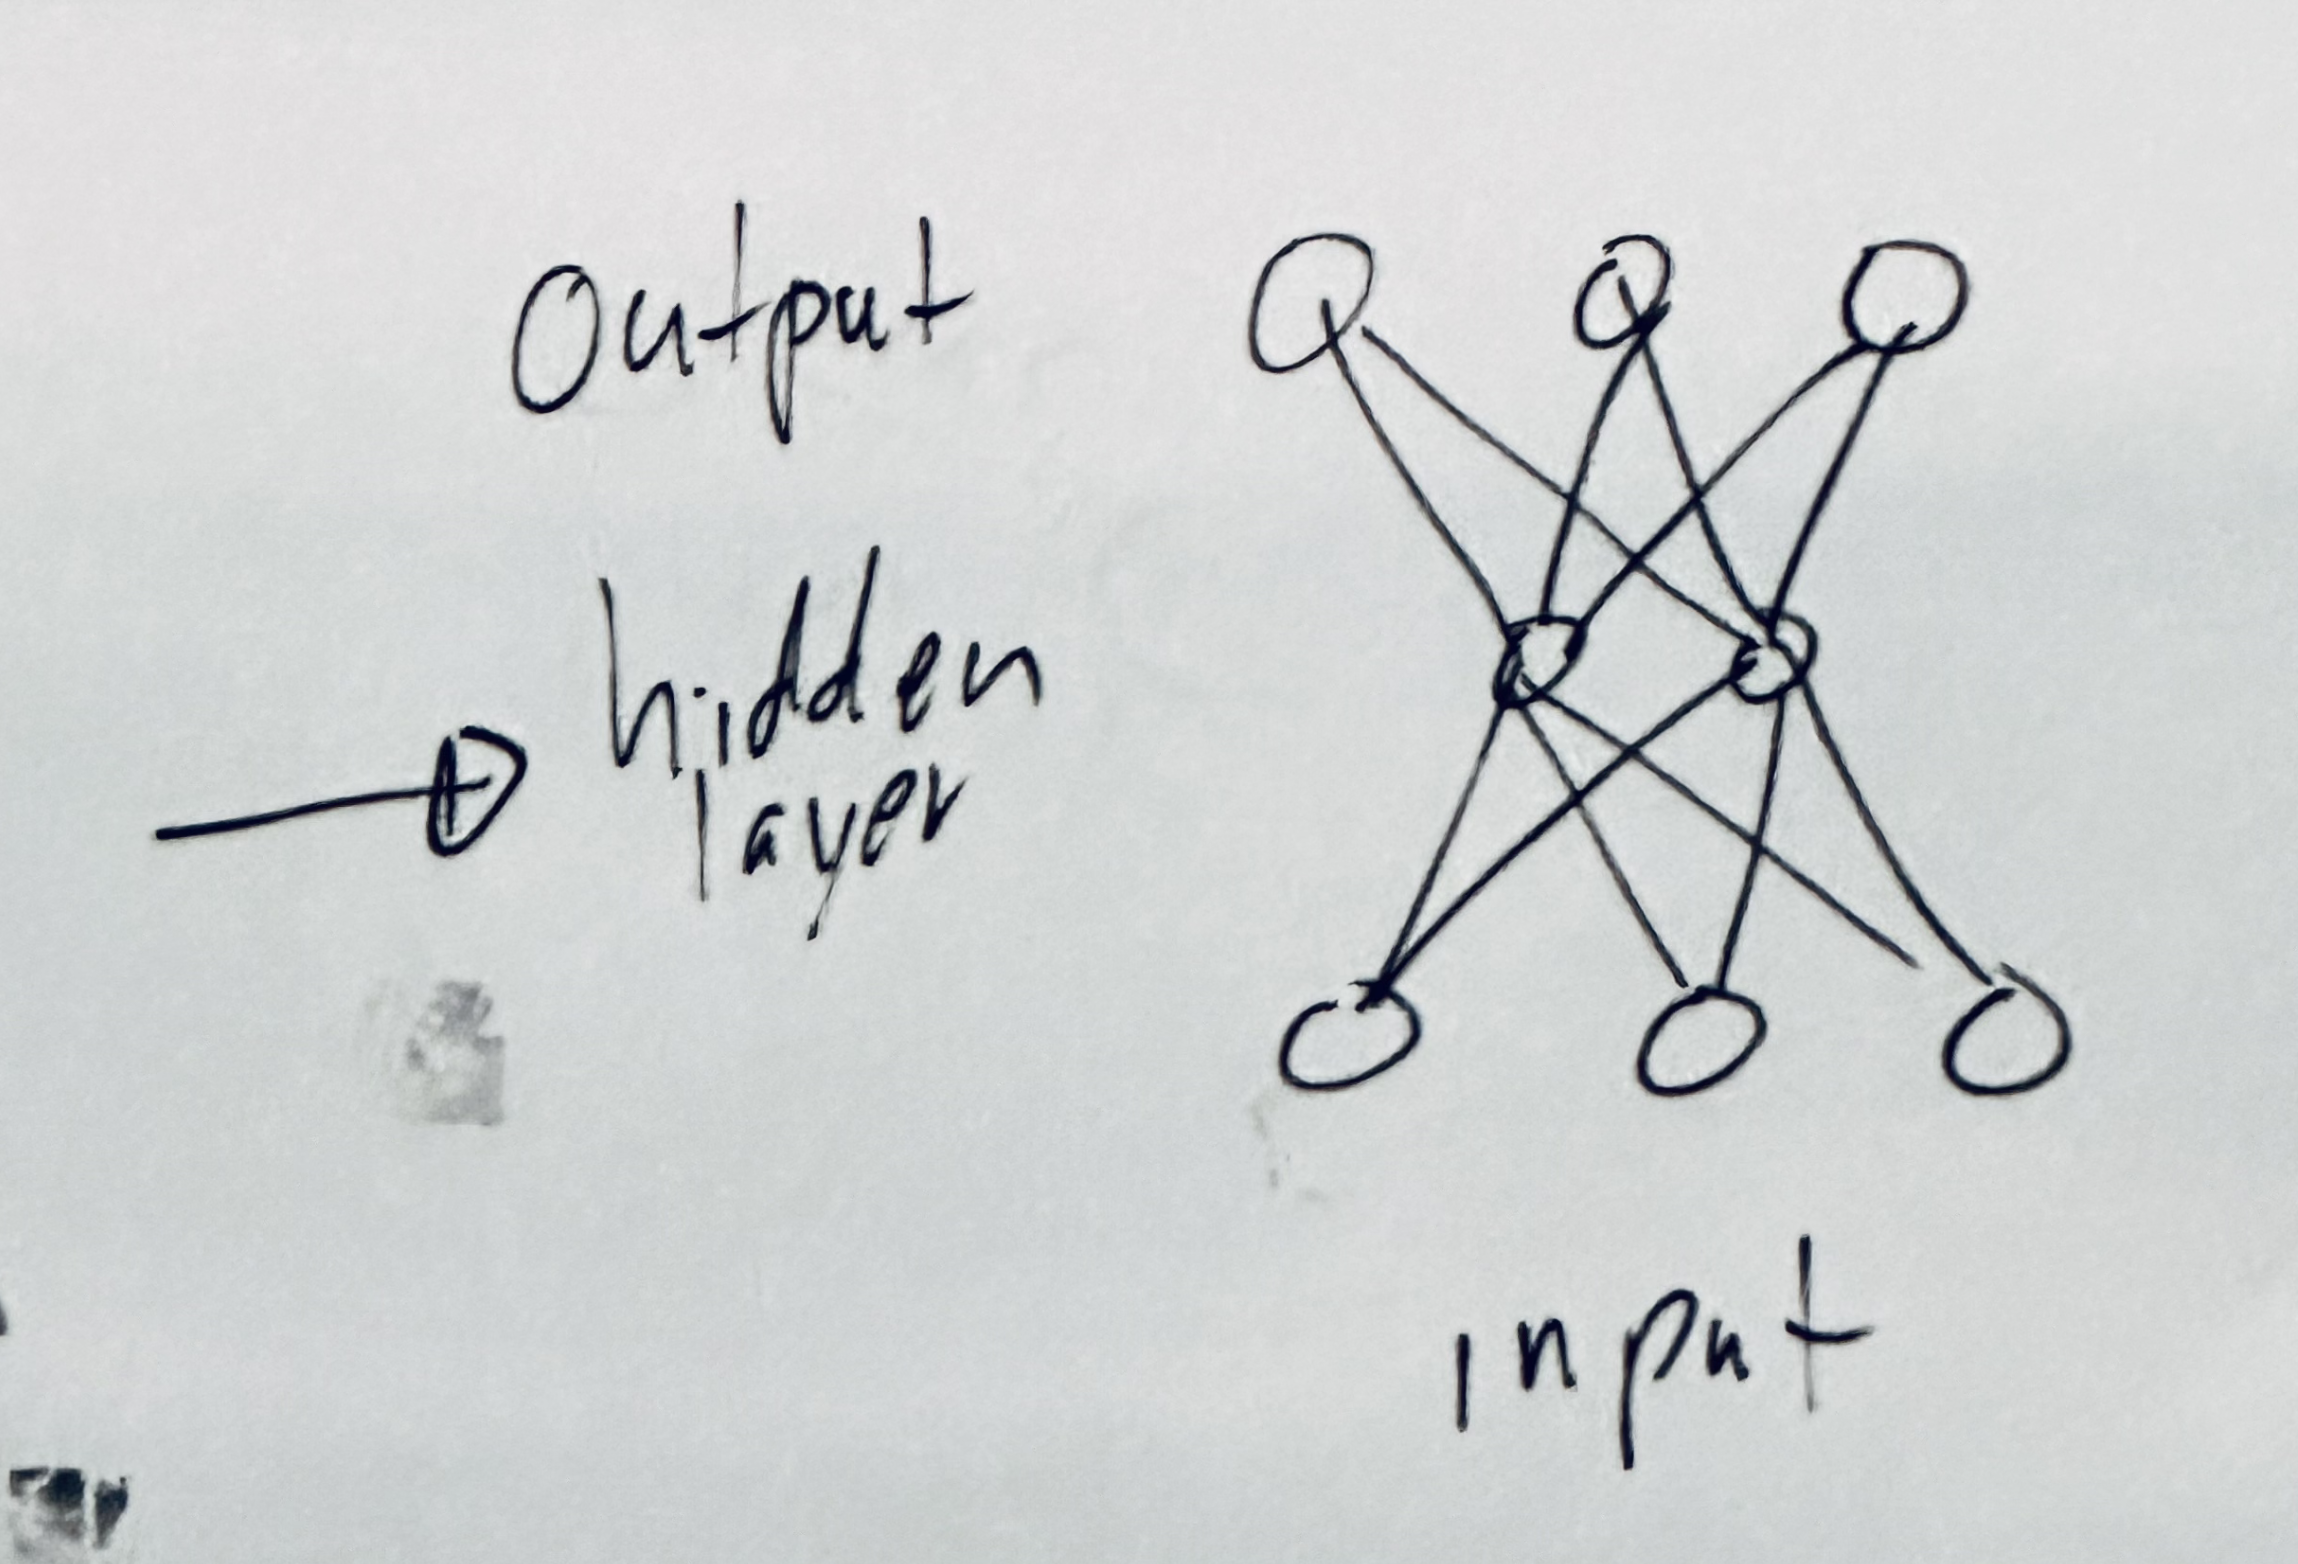 Output
hidden
layer
input